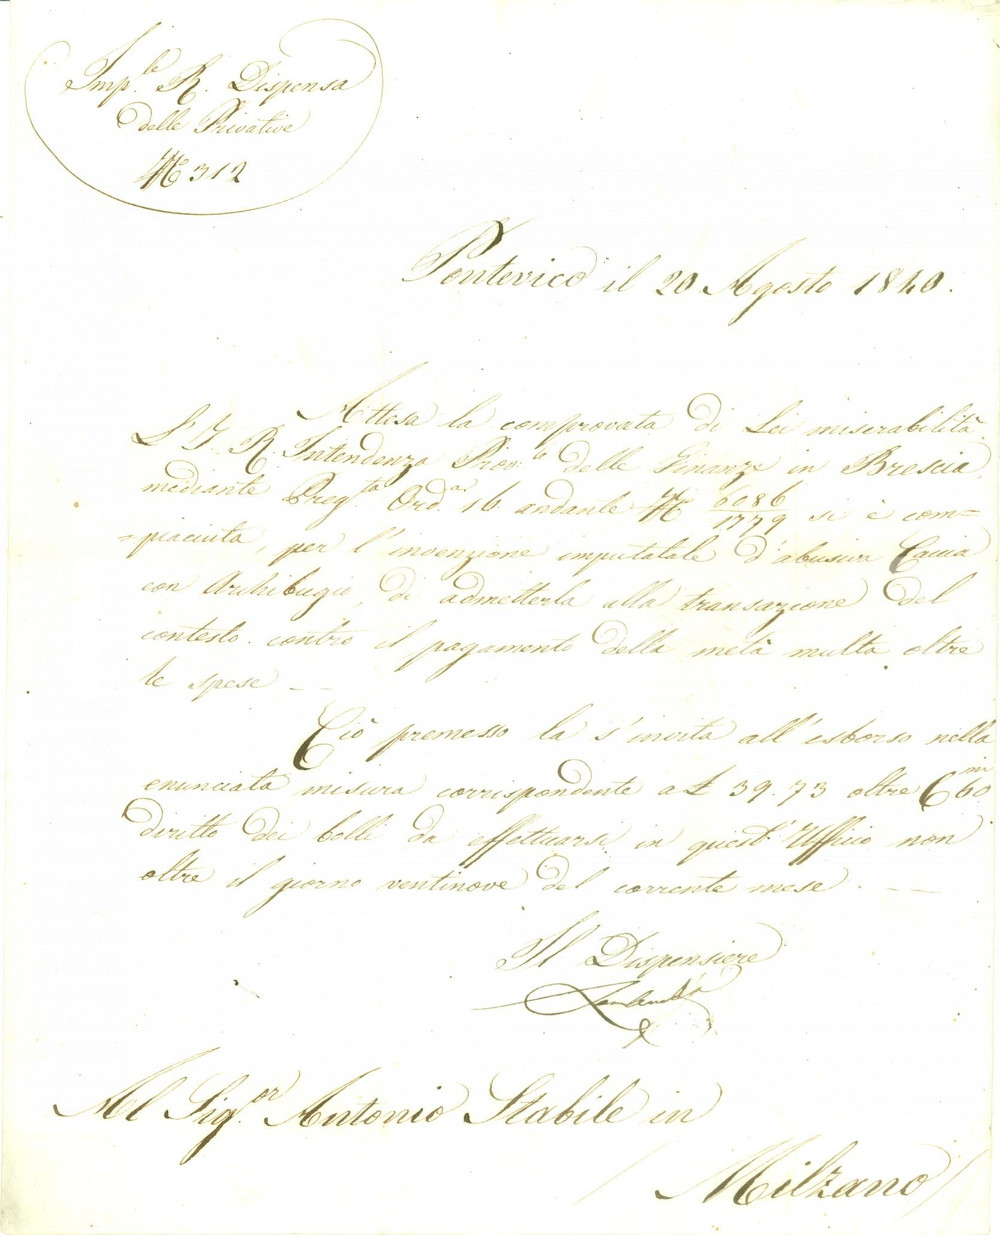 Imp.le R. Dispensa
delle Privative
N.o 312
Pontevico il 20 Agosto 1840.
Attesa la comprovata di Lei miserabilità
L'I. R. Intendenza Prov.le delle Finanze in Brescia,
mediante Preg.ta Ord.a 16 andante N. 6086/1779 si è com=
=piaciuta, per l'invenzione imputatale d'abusiva Caccia
con Archibugio, di admetterla alla transazione del
contesto contro il pagamento della metà multa oltre
le spese —
Ciò premesso la s'invita all'esborso nella
enunciata misura corrispondente a £ 39.73 oltre C.mi 60
diritto dei bolli da effettuarsi in quest'Ufficio non
oltre il giorno ventinove del corrente mese. —
Il Dispensiere
Al Sig.or Antonio Stabile in
Milzano